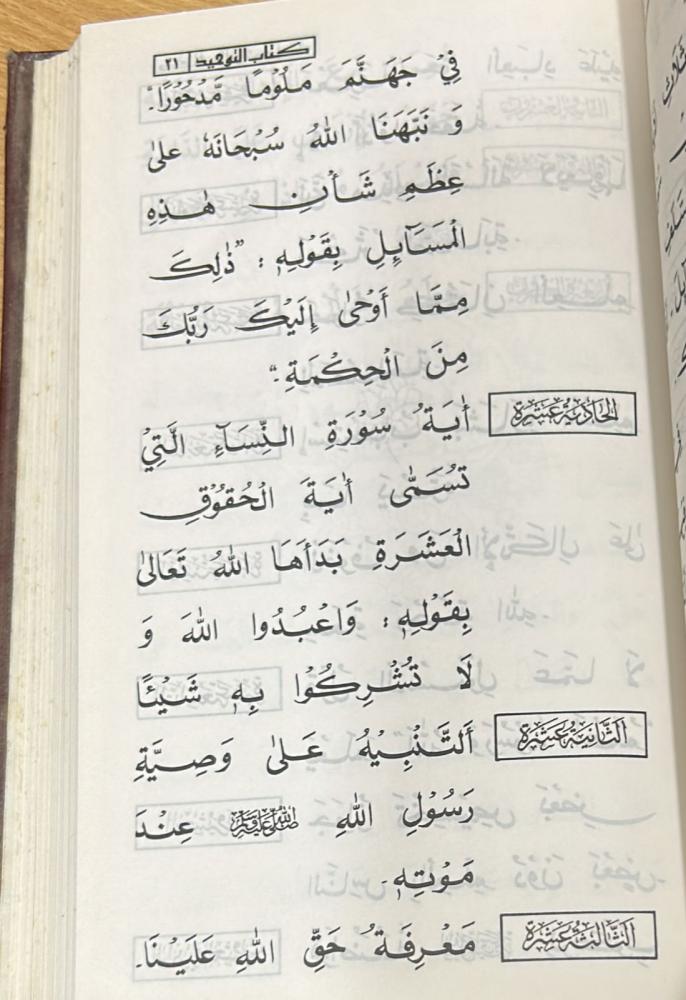 كتاب التوحيد ٢١
فِيْ جَهَنَّمَ مَلُوْمًا مَّدْحُوْرًا."
وَ نَبَّهَنَا اللهُ سُبْحَانَهٗ عَلىٰ
عِظَمِ شَأْنِ هٰذِهِ
الْمَسَآئِلِ بِقَوْلِهٖ: "ذٰلِكَ
مِمَّا أَوْحٰى إِلَيْكَ رَبُّكَ
مِنَ الْحِكْمَةِ."
الحَادِيَةُ عَشَرَةَ أٰيَةُ سُوْرَةِ النِّسَاءِ الَّتِيْ
تُسَمّٰى أٰيَةَ الْحُقُوْقِ
الْعَشَرَةِ بَدَأَهَا اللهُ تَعَالىٰ
بِقَوْلِهٖ: وَاعْبُدُوا اللهَ وَ
لَا تُشْرِكُوْا بِهٖ شَيْئًا
اَلثَّانِيَةُ عَشَرَةَ أَلتَّنْبِيْهُ عَلىٰ وَصِيَّةِ
رَسُوْلِ اللهِ ﷺ عِنْدَ
مَوْتِهٖ.
اَلثَّالِثَةُ عَشَرَةَ مَعْرِفَةُ حَقِّ اللهِ عَلَيْنَا.